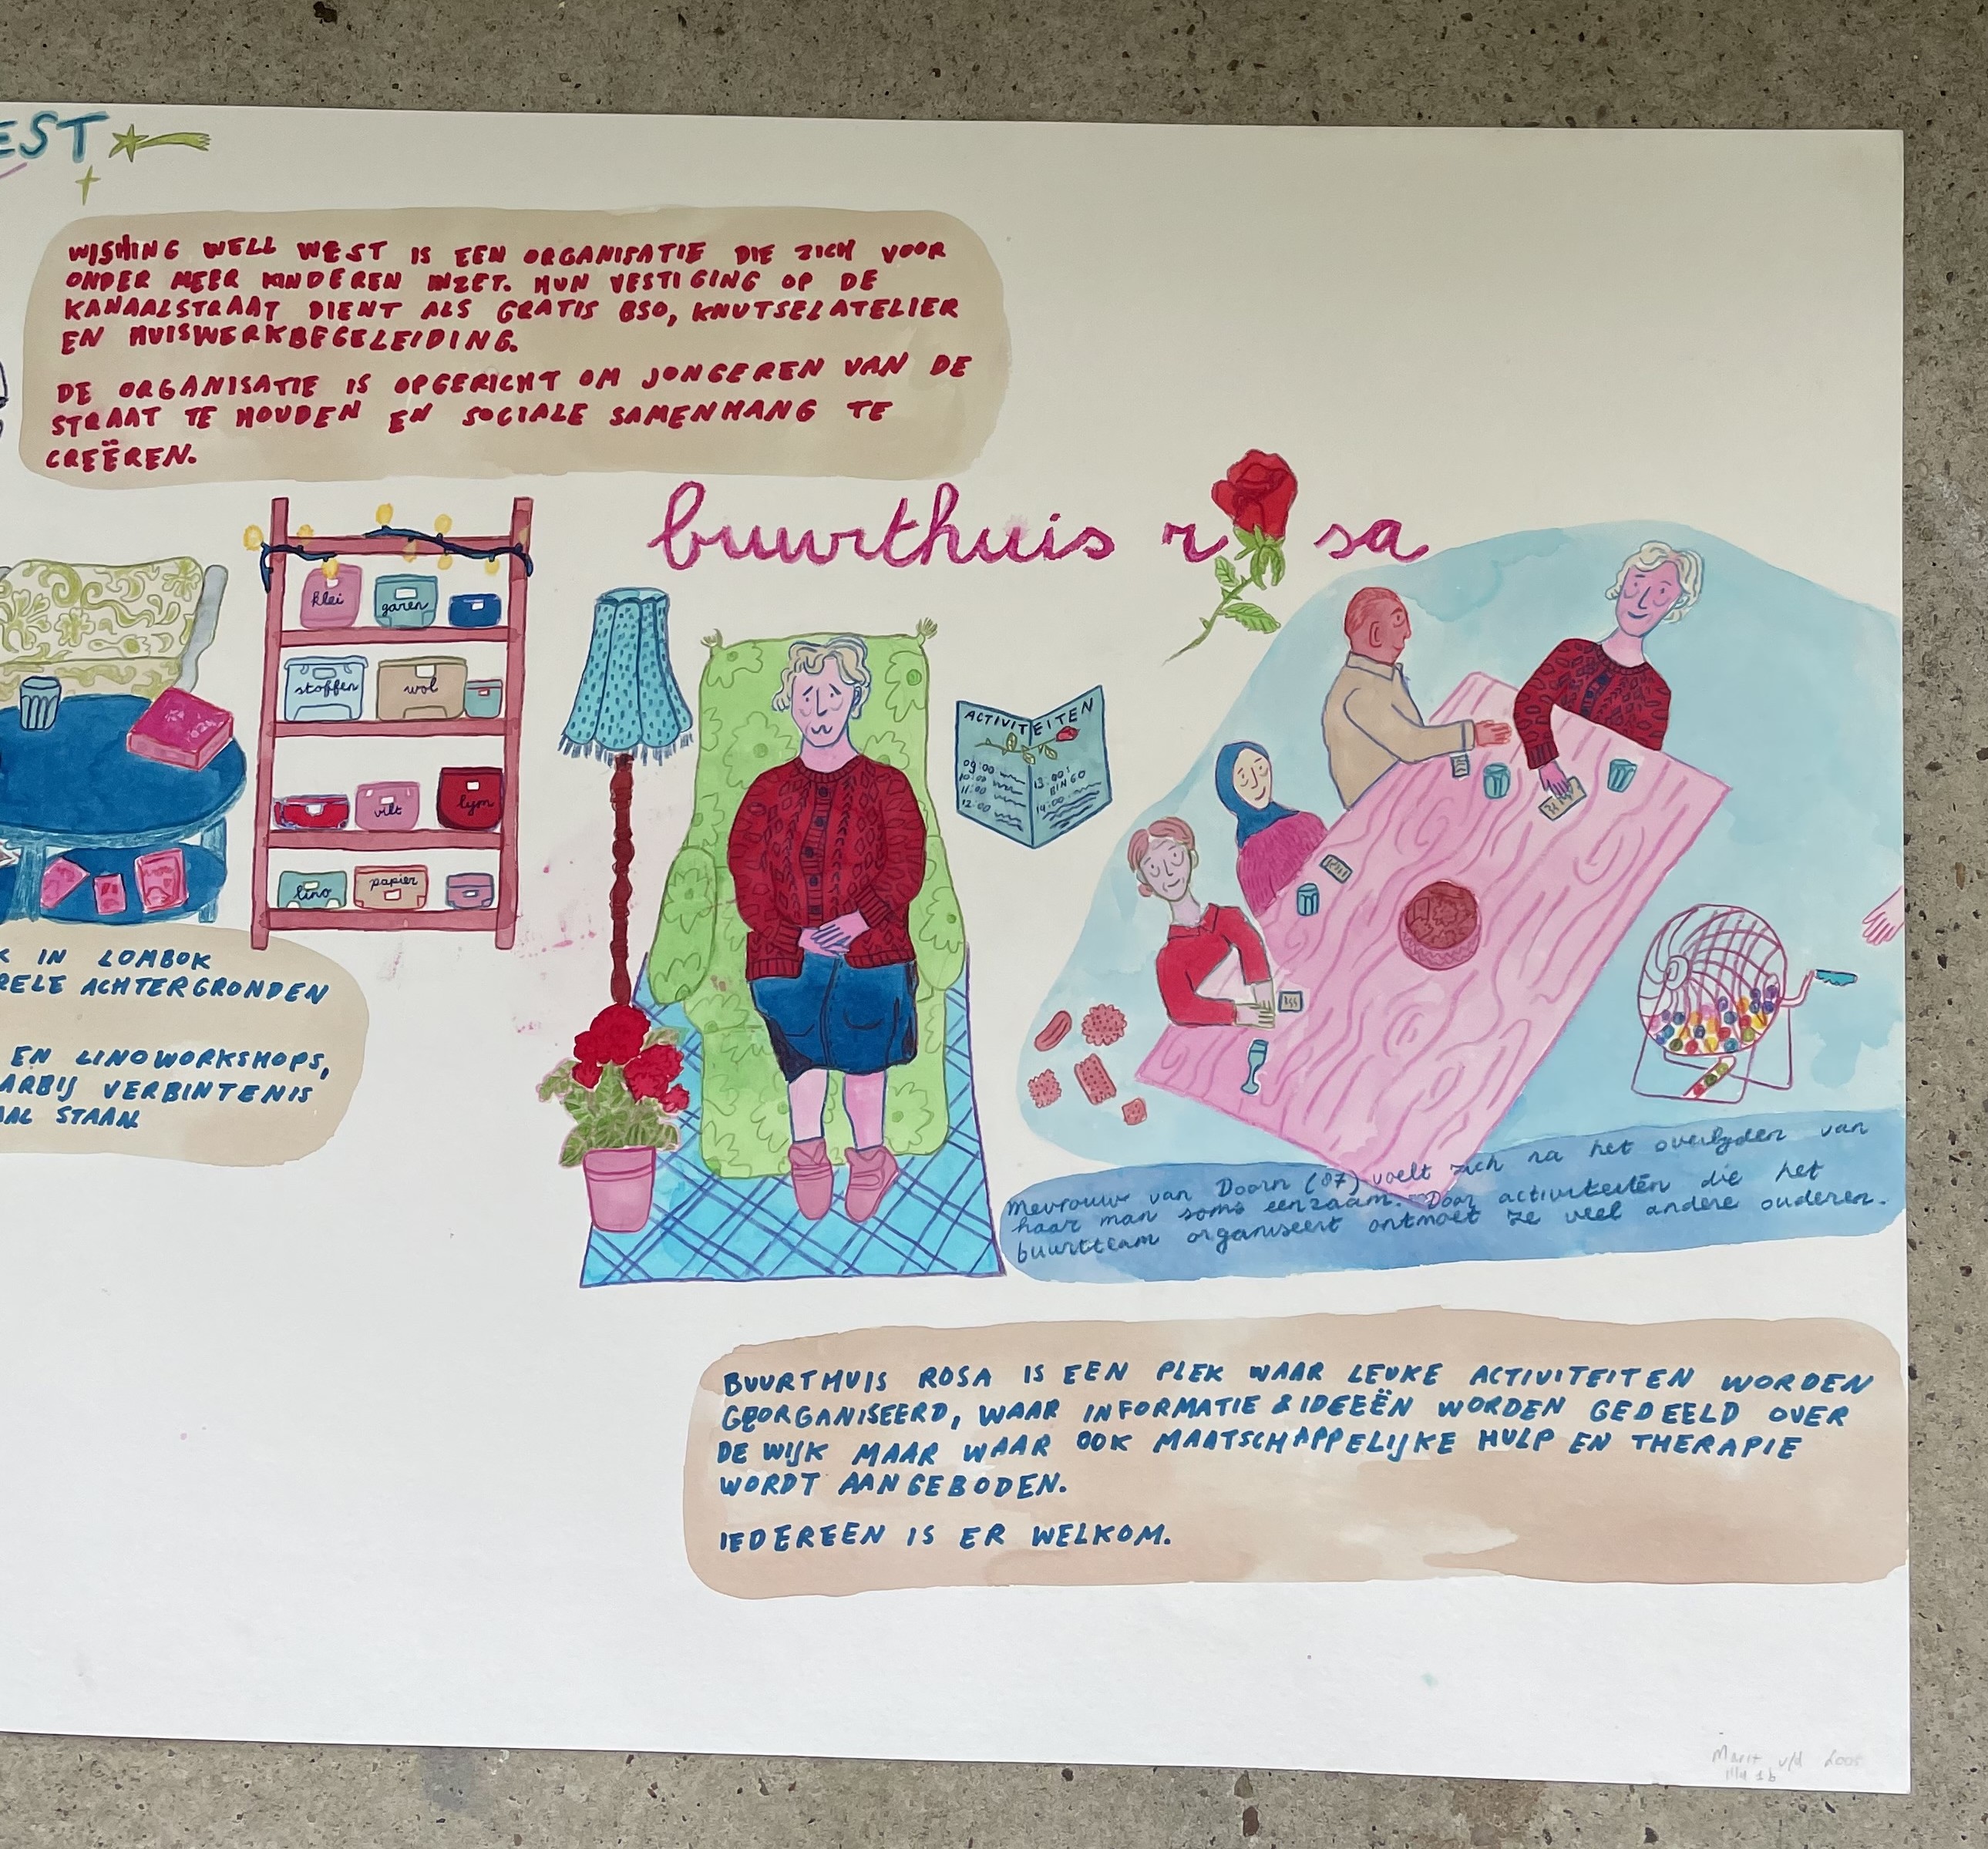 EST
WISHING WELL WEST IS EEN ORGANISATIE DIE ZICH VOOR
ONDER MEER KINDEREN INZET. HUN VESTIGING OP DE
KANAALSTRAAT DIENT ALS GRATIS BSO, KNUTSELATELIER
EN HUISWERKBEGELEIDING.
DE ORGANISATIE IS OPGERICHT OM JONGEREN VAN DE
STRAAT TE HOUDEN EN SOCIALE SAMENHANG TE
CREËREN.
klei
garen
stoffen
wol
vilt
lijm
lino
papier
K IN LOMBOK
RELE ACHTERGRONDEN
EN LINOWORKSHOPS,
ARBIJ VERBINTENIS
AAL STAAN
buurthuis rosa
ACTIVITEITEN
09:00
10:00
11:00
12:00
13:00!
BINGO
14:00
Mevrouw van Doorn (87) voelt zich na het overlijden van
haar man soms eenzaam. Door activiteiten die het
buurtteam organiseert ontmoet ze veel andere ouderen.
BUURTHUIS ROSA IS EEN PLEK WAAR LEUKE ACTIVITEITEN WORDEN
GEORGANISEERD, WAAR INFORMATIE & IDEEËN WORDEN GEDEELD OVER
DE WIJK MAAR WAAR OOK MAATSCHAPPELIJKE HULP EN THERAPIE
WORDT AANGEBODEN.
IEDEREEN IS ER WELKOM.
Marit v/d